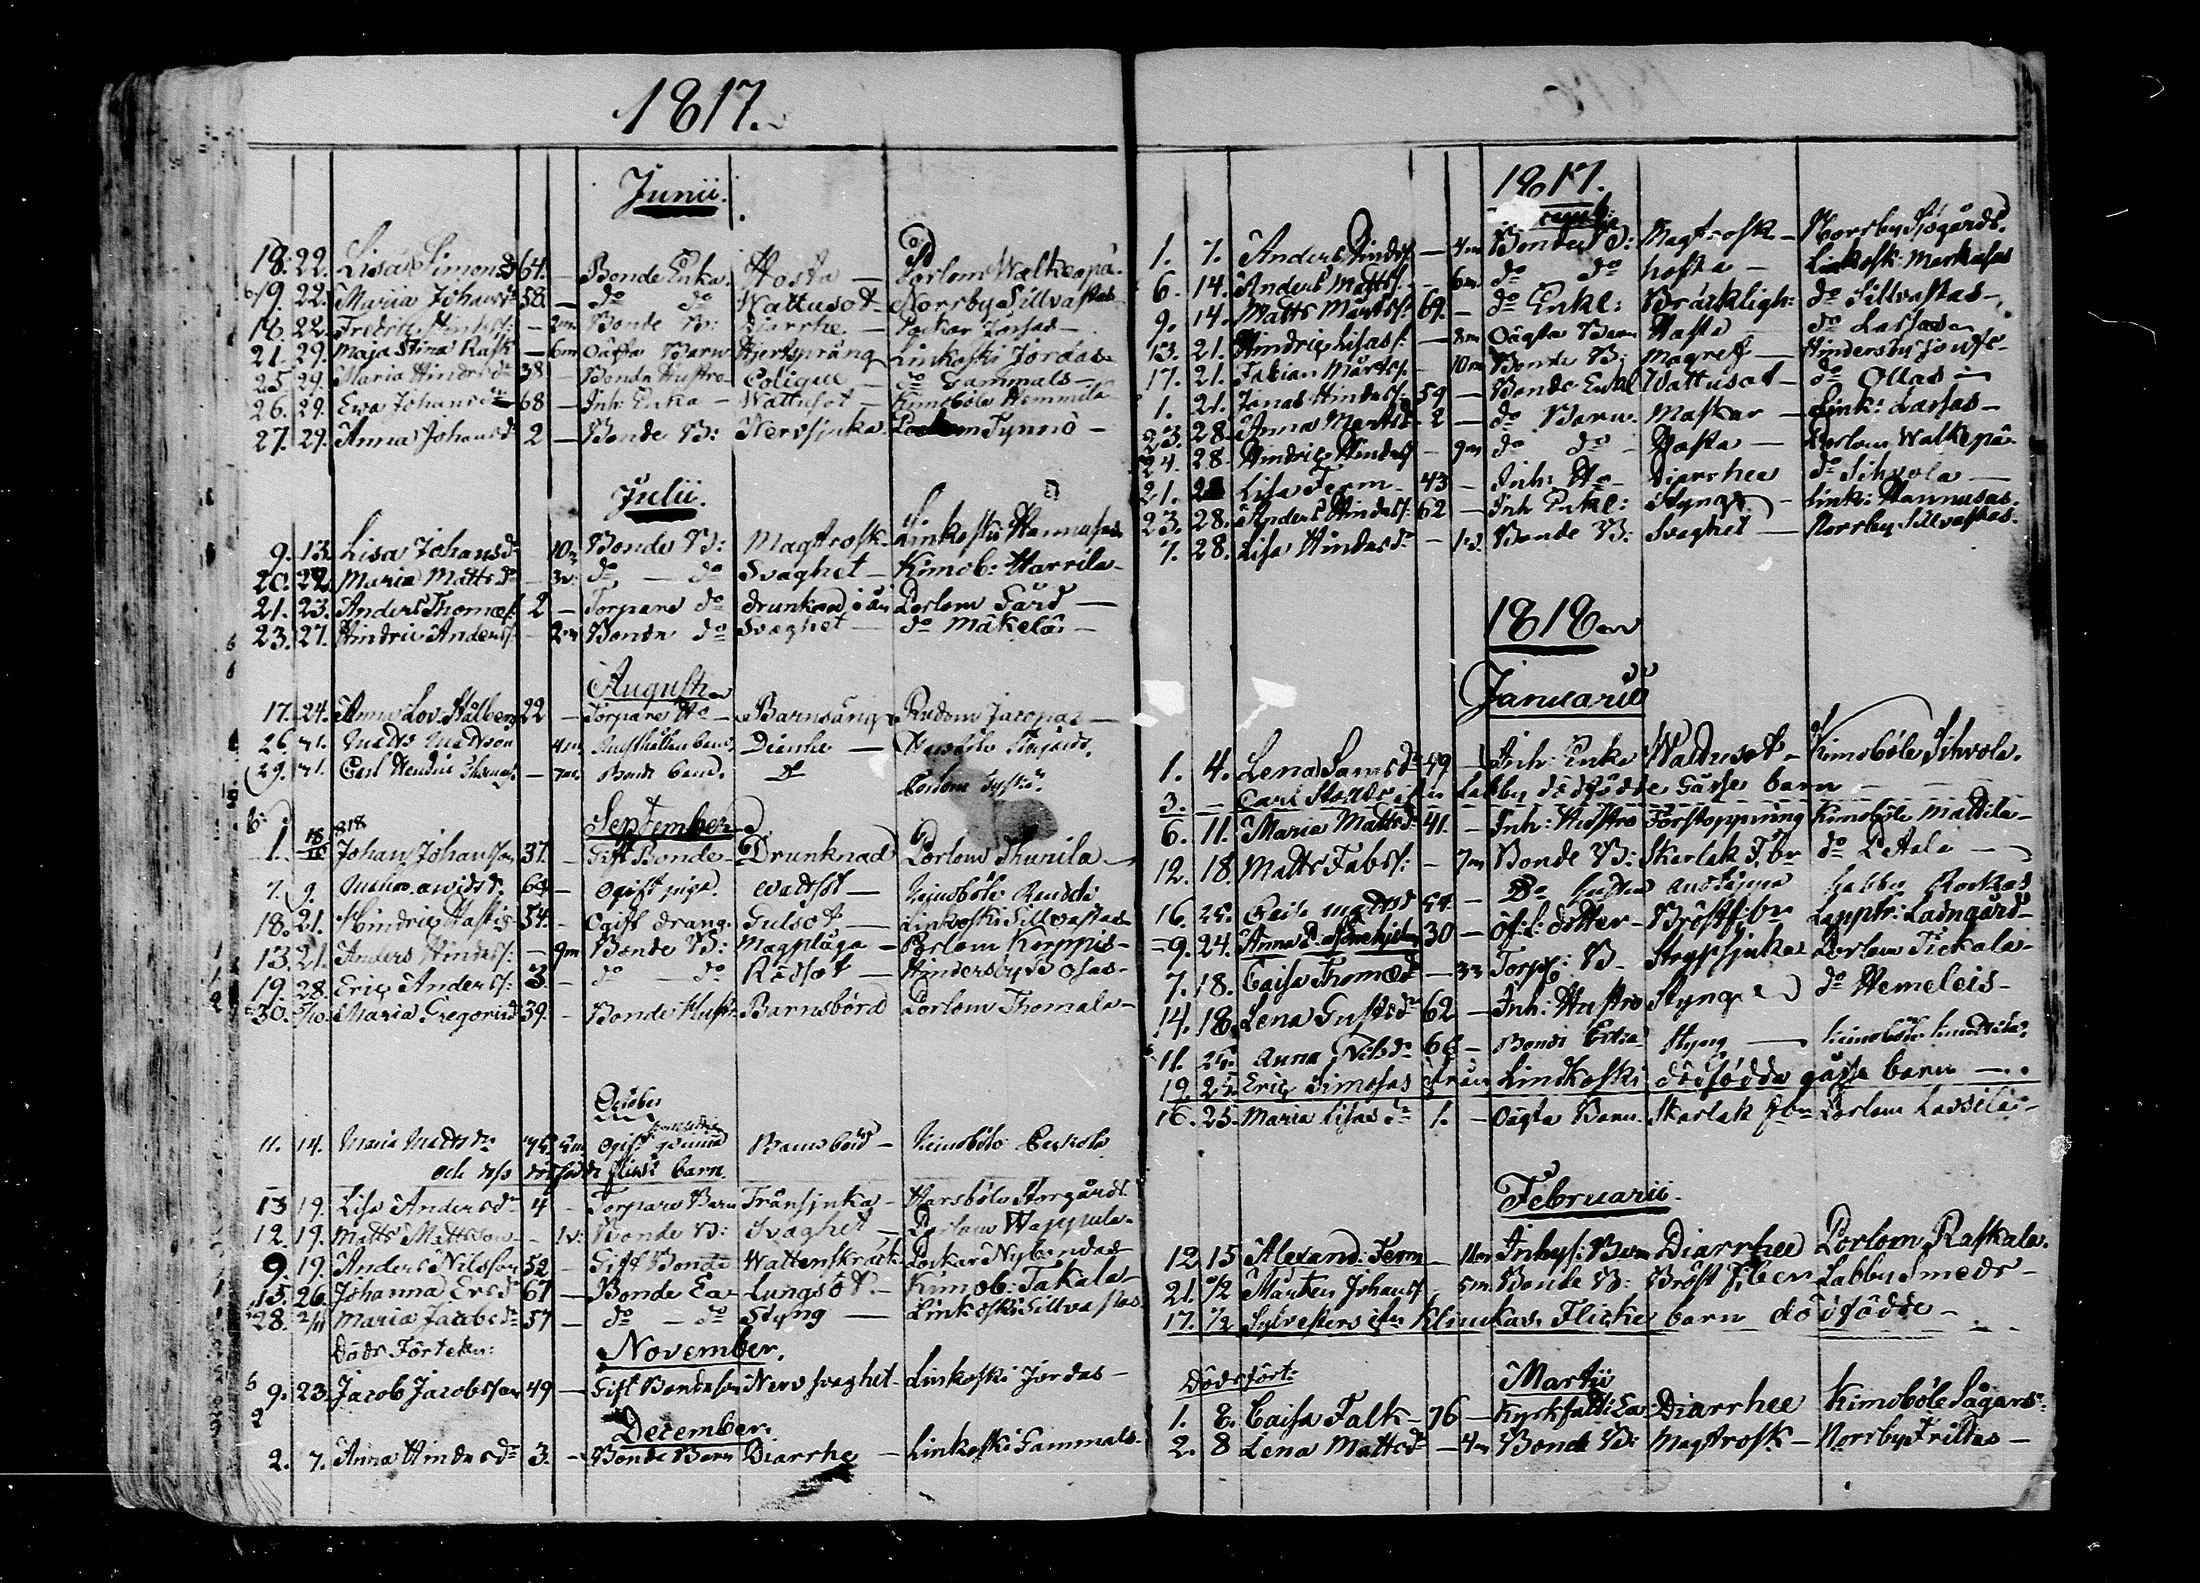 1817.
Junii.
18. 22. Lisa Simonsdr 64. — Bonde Enka Hosta — Porlom Walkeapä.
19. 22. Maria Johansdr 58. — do do Wattusot — Norrby Sillvastas
18. 22. Fredric — 2m Bonde B: Diarrhe — Lockar Jossas —
21. 29. Maja Stina Rask — 6m Oägta Barn Hjertsprång Linkoski Jordas
25. 29. Maria Hindrsdr 38 — Bonde Hustro Colique — do Gammals —
26. 29. Ewa Johansdr 68 — Inh: Enka — Wattusot — Kimoböle Hemmila
27. 29. Anna Johansdr 2 — Bonde B: Nervsjuka Porlom Tynnö —
Julii.
9. 13. Lisa Johansdr 10m Bonde B: Magtrosk — Linkoski Hannusas
20. 22. Maria Mattsdr — 3v: do — do Svaghet — Kimob: Harrila —
21. 23. Anders Thomass: 2 — Torpare do drunknad i ån Porlom Gård —
23. 27. Hindric Anderss: — 2m Bonde do Svaghet — do Mäkelä —
Augusti
17. 24. Anna Lov: Stålberg 22 — Torpare Ho — Barnsäng Rudom Jacopas —
26. 31. Matts Mattsson 4m barn Diarrhe — Storgårds.
29. 31. Carl Hendric — 7m Bonde barn. do Porlom
September
1. 18/10 818 Johan Johansson 37. — Gift Bonde — Drunknad Porlom Thunila —
7. 9. 69 — Ogift piga. Wattsot — Kimoböle
18. 21. Hindric 54. — Ogift dräng. Gulsot — Linkoski Sillvastas
13. 21. Anders Hindrss: — 9m Bonde B: Magplåga — Porlom Korppis —
19. 28. Eric Anderss: 3. — do — do Rödsot — Hindersby
30. 5/10. Maria Gregorisd 39. — Bonde Hustr: Barnsbörd Porlom Thomala —
October
11. 14. Maria Mattsdr 45 Ogift qvinna Barnsbörd — Kimoböle
och dess dödfödde flick barn.
13. 19. Lisa Andersdr 4 — Torpare Barn Trånsjuka — Harsböle Storgårds
12. 19. Matts Mattsson — 1v: Bonde B: Svaghet — Porlom Wappula —
9. 19. Anders Nilsson 52 — Gift Bonde Wattenskräck Lockar Nybondas
15. 26. Johanna Ersdr 67 — Bonde Ea — Lungsot — Kimob: Takala —
28. 2/11 Maria Jacobsdr 57 — do — do Styng — Linkoski Sillvastas
Döds Förtekn:
November.
9. 23. Jacob Jacobsson 49 — Gift Bondeson Nervsvaghet — Linkoski Jordas —
December.
2. 7. Anna Hindrsdr 3. — Bonde Barn Diarrhe — Linkoski Gammals —
1817.
1. 7. Anders Hindrss — 4m Bonde B: Magtrosk — Norrby Sjögårds.
6. 14. Anders Mattss. — 6m. do do hosta — Linkosk: Markusas
9. 14. Matts Mårtss: 69. — do Enkl: Bräckligh: do Sillvastas —
13. 21. Hindric — 8m Oägta Barn Hosta — do Lassas —
17. 21. Fabian Mårtss. — 10m Bonde B: Magref — Hindersby
1. 21. Jonas Hindrss: 59 — Bonde Enkl Wattusot — do Ollas —
23. 28. Anna 2 — do Barn. Maskar — Link: Lassas —
24. 28. Hindric Hindrss — 9m do do — Hosta — Porlom Walkepä
21. 28 Lisa Term — 43 — Inh: Ho — Diarrhee do Sihvola —
23. 28. Anders Hindrss: 62 — Inh Enkl: Styng Link: Hannusas.
7. 28. Lisa Hindrsdr — Bonde B. Svaghet — Norrby Sillvastas.
1818
Januarii
1. 4. Lena Samsdr 49 — Inh: Enka Wattusot — Kimoböle Sihvola.
3. — Carl Labby dödfödde Gåsse barn
6. 11. Maria Mattsdr 41. — Inh: Hustro Förstoppning Kimoböle Mattila —
12. 18. Matts Fabss: — 7m Bonde B: Skarlak F:br do LAala —
16. 25. Caisa 54. — Bo Labby Rockas
9. 24. Anna 30 — of: L: dotter — Bröstf:br Lapptr: Ladugård —
7. 18. Caisa Thomædr — Torp: B — Stryppsjuka Porlom Tickala —
14. 18. Lena Gustsdr 62 — Inh: Hustro Styng do Hemeleis —
11. 25. Anna Nilsdr 66 — Bonde Enka Styng — Kimoböle
19. 25. Eric Simosas Från Lindkoski dödfödde gåsse barn —
16. 25. Maria 1. — Oägta Barn. Skarlak Fbr Porlom Lassila —
Februarii.
12. 15 Alexand: Term — 11m Inhys: Barn Diarrhee Porlom Raskala.
21. 1/2 Mårten Johanss 5m. Bonde B: Bröst Feber Labby Smeds —
17. 1/2 Sylvesters ifrn Klinckas Flicke barn dödfödde —
Dödsfört:
Martii
1. 8. Caisa Falk — 76 — Kyrkfatti Ea Diarrhee Kimoböle Sågars:
2. 8 Lena Mattsdr — 4m Bonde B: Magtrosk — Norrby Frildas —